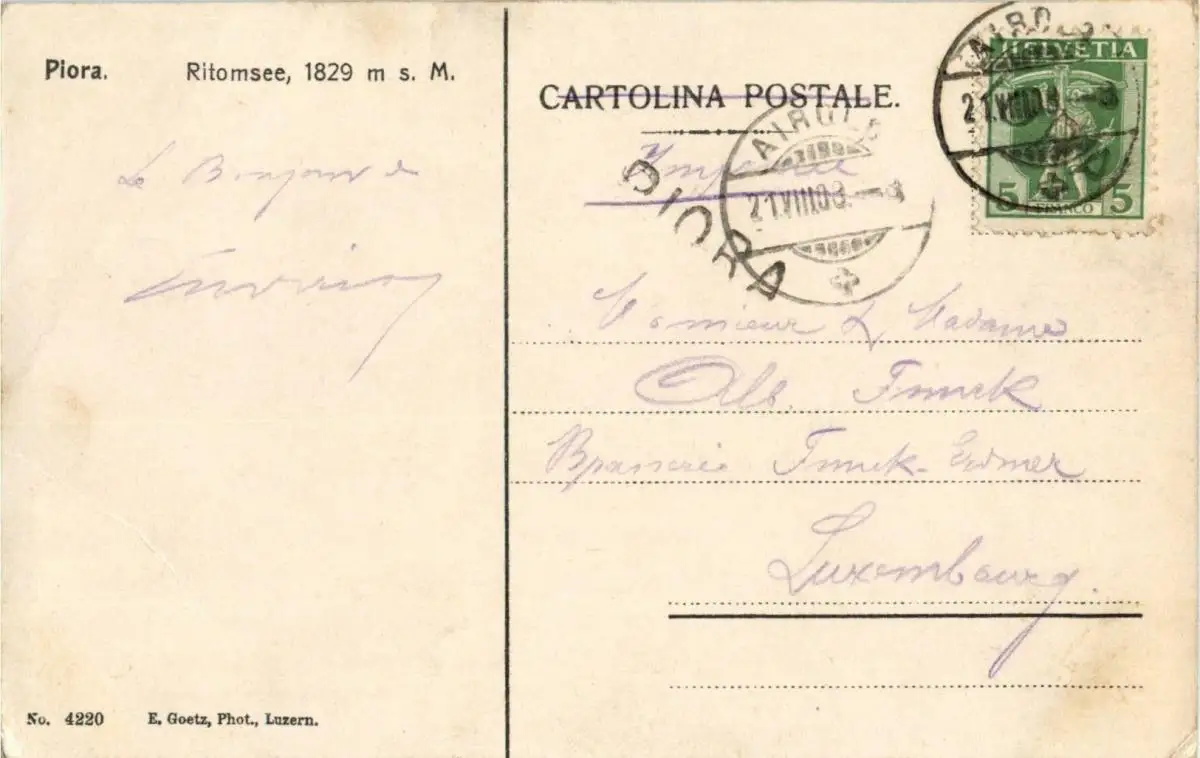 Piora. Ritomsee, 1829 m s. M.
Le Bonjour de
No. 4220 E. Goetz, Phot., Luzern.
CARTOLINA POSTALE.
Imprimé
PIORA
AIROLO
21.VIII.08.–8
AIROLO
21.VIII.08.–8
HELVETIA
5 FRANCO 5
Monsieur & Madame
Alb. Funck
Brasserie Funck-Erdmer
Luxembourg.